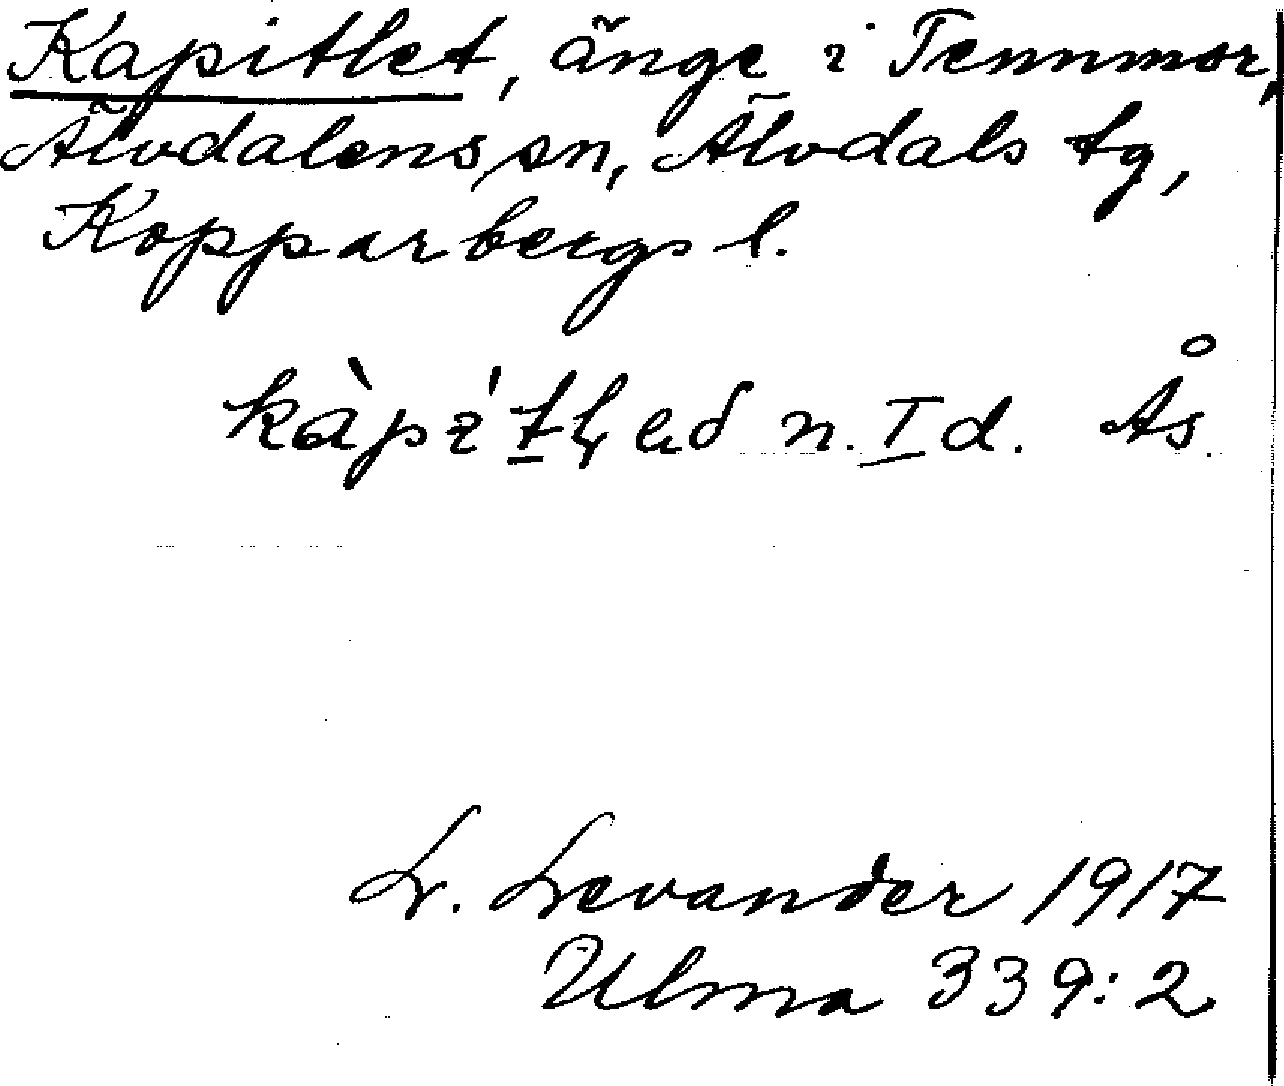 Kapitlet, änge i Tennmor,
Älvdalens sn, Älvdals tg,
Kopparbergs l.
n. I d. Ås.
L. Levander 1917
Ulma 339:2